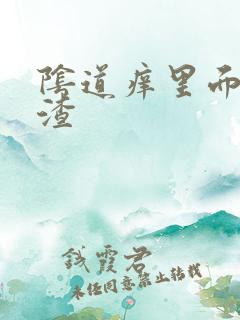 陰道痒里而
渣
钱霞君
未任同意禁止转载